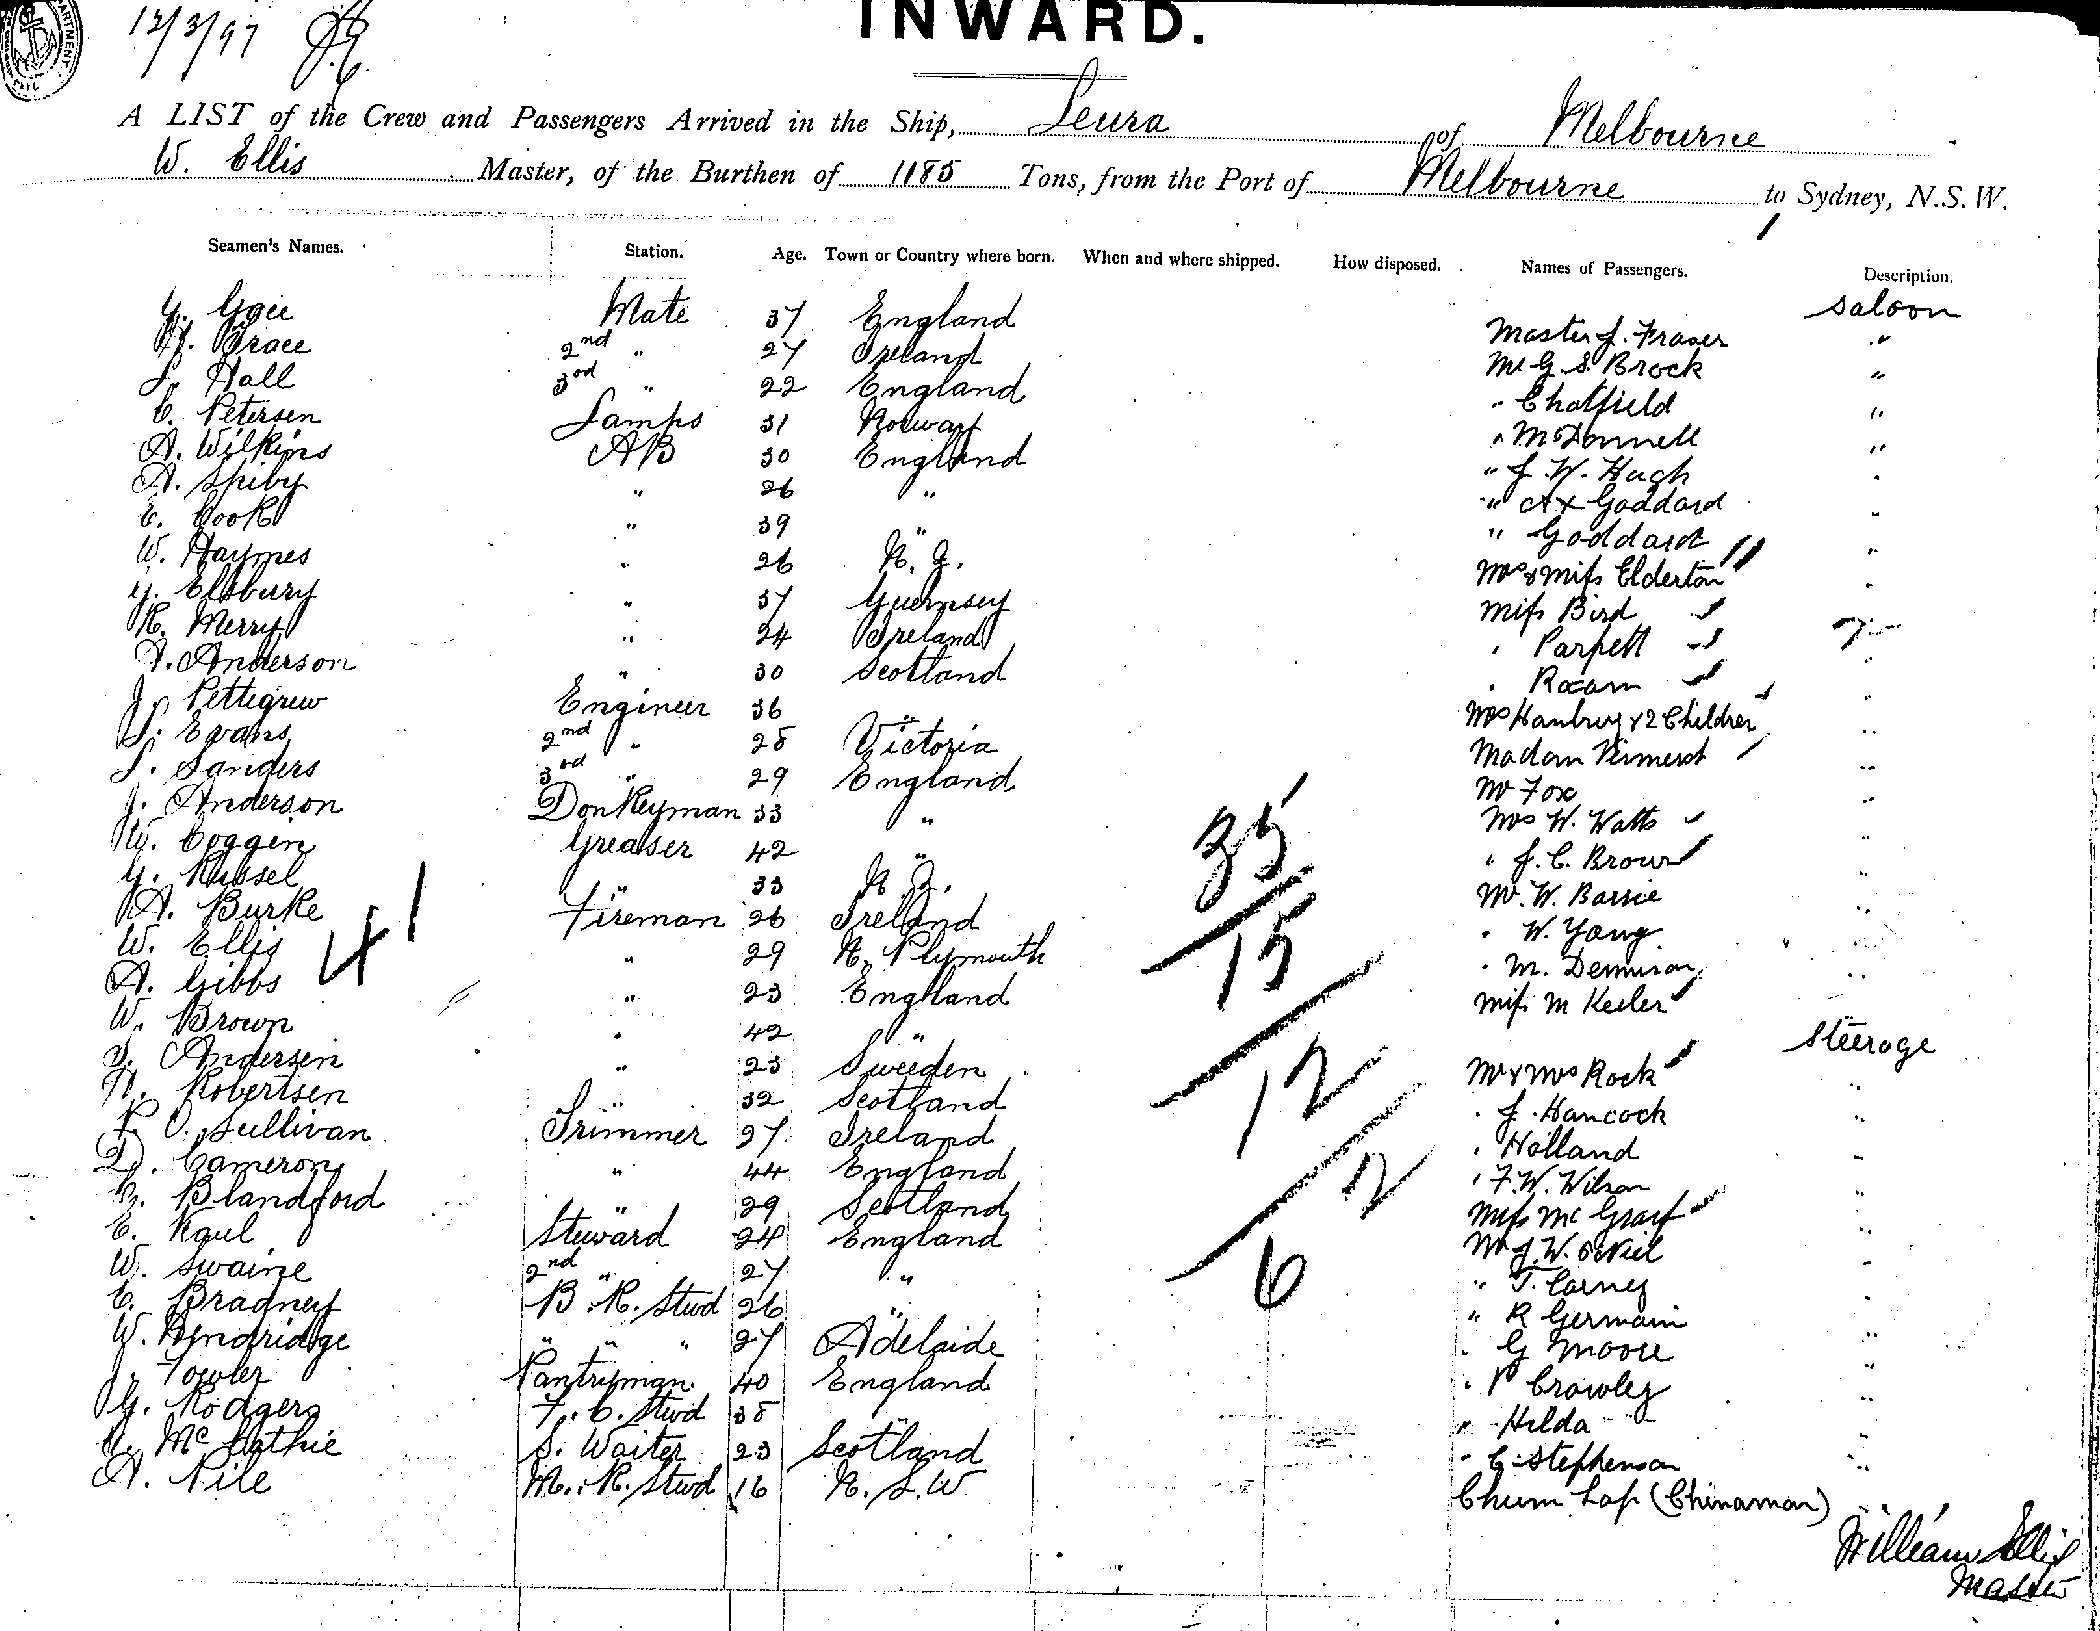 12/3/97
INWARD.
A LIST of the Crew and Passengers Arrived in the Ship, Leura of Melbourne
W. Ellis Master, of the Burthen of 1185 Tons, from the Port of Melbourne to Sydney, N.S.W.
Seamen's Names. Station. Age. Town or Country where born. When and where shipped. How disposed. Names of Passengers. Description.
Mate 37 England Saloon
H. Grace 2nd " 27 Ireland Master J. Fraser "
S. Hall 3rd " 22 England Mr G. S. Brock "
C. Petersen Lamps 31 Norway " Chatfield "
A. Wilkins AB 30 England " McDonnell "
A. Spiby " 26 " " J. W. Hugh "
E. Cook " 39 " " Goddard "
W. Haymes " 26 N. Z. " Goddard "
G. Ellsbury " 37 Guernsey Mrs & Miss Elderton "
R. Merry " 24 Ireland Miss Bird
A. Anderson " 30 Scotland "
J. Pettegrew Engineer 36 " "
S. Evans 2nd " 28 Victoria Mrs Hanbury & 2 Children "
S. Sanders 3rd " 29 England Madam "
J. Anderson Donkeyman 33 " Mr Fox "
W. Coggen Greaser 42 " Mrs W. Watts "
G. Russel " 33 N. Z. " J. C. Brown "
A. Burke Fireman 26 Ireland Mr. W. Barrie "
W. Ellis " 29 N. Plymouth " W. Yong "
A. Gibbs " 23 England " M. Dennison "
W. Brown " 42 " Miss M Keeler
S. Andersen " 23 Sweeden Steerage
N. Robertsen " 32 Scotland Mr & Mrs Rock "
P. O. Sullivan Trimmer 27 Ireland " J. Hancock "
D. Cameron " 44 England " Holland "
Blandford " 29 Scotland " F. W. Wilson "
E. Kaul Steward 24 England Miss
W. Swaine 2nd " 27 " Mr J. W. "
C. Bradney B. R. Stwd 26 " " T. Carney "
W. Hendridge " " " 27 Adelaide " R Germain "
J. Fowler Pantryman 40 England " G Moore "
G. Rodgers F. C. Stwd 38 " " P Crowley "
Mc Lathie S. Waiter 23 Scotland " Hilda "
A. Pile M. R. Stwd 16 N. S. W " C. Stephenson "
(Chinaman)
41
35
15
12
2
6
William Ellis
Master